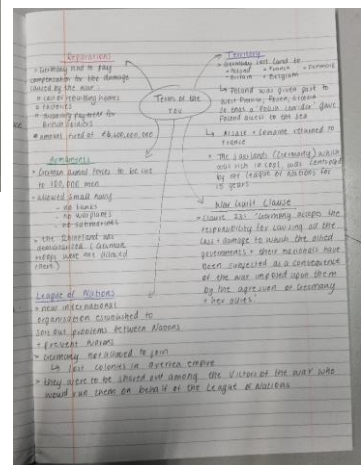 Reparations
• Germany had to pay
compensation for the damage
caused by the war:
cost of rebuilding homes
+ factories
payment for
• amount fixed at £6,600,000,000
Armaments
• German armed forces to be cut
to 100,000 men
• allowed small navy
- no tanks
- no warplanes
- no submarines
• the Rhineland was
demilitarised (German
troops were not allowed
there)
League of Nations
• new international
organisation established to
sort out problems between Nations
+ prevent
• Germany not allowed to join
↳ lost colonies in overseas empire
• they were to be shared out among the victors of the war who
would run them on behalf of the League of Nations
Terms of the
TOV
Territory
• Germany lost land to
• Poland • France • Denmark
• Belgium
↳ Poland was given part of
West Prussia, Posen,
so that a Polish corridor gave
Poland access to the sea
↳ Alsace + Lorraine returned to
France
• The Saarlands (Germany) which
was rich in coal was controlled
by the League of Nations for
15 years
War Guilt Clause
• Clause 231: "Germany accepts the
responsibility for causing all the
loss + damage to which the allied
governments + their nationals have
been subjected as a consequence
of the war imposed upon them
by the agression of Germany
+ her allies"